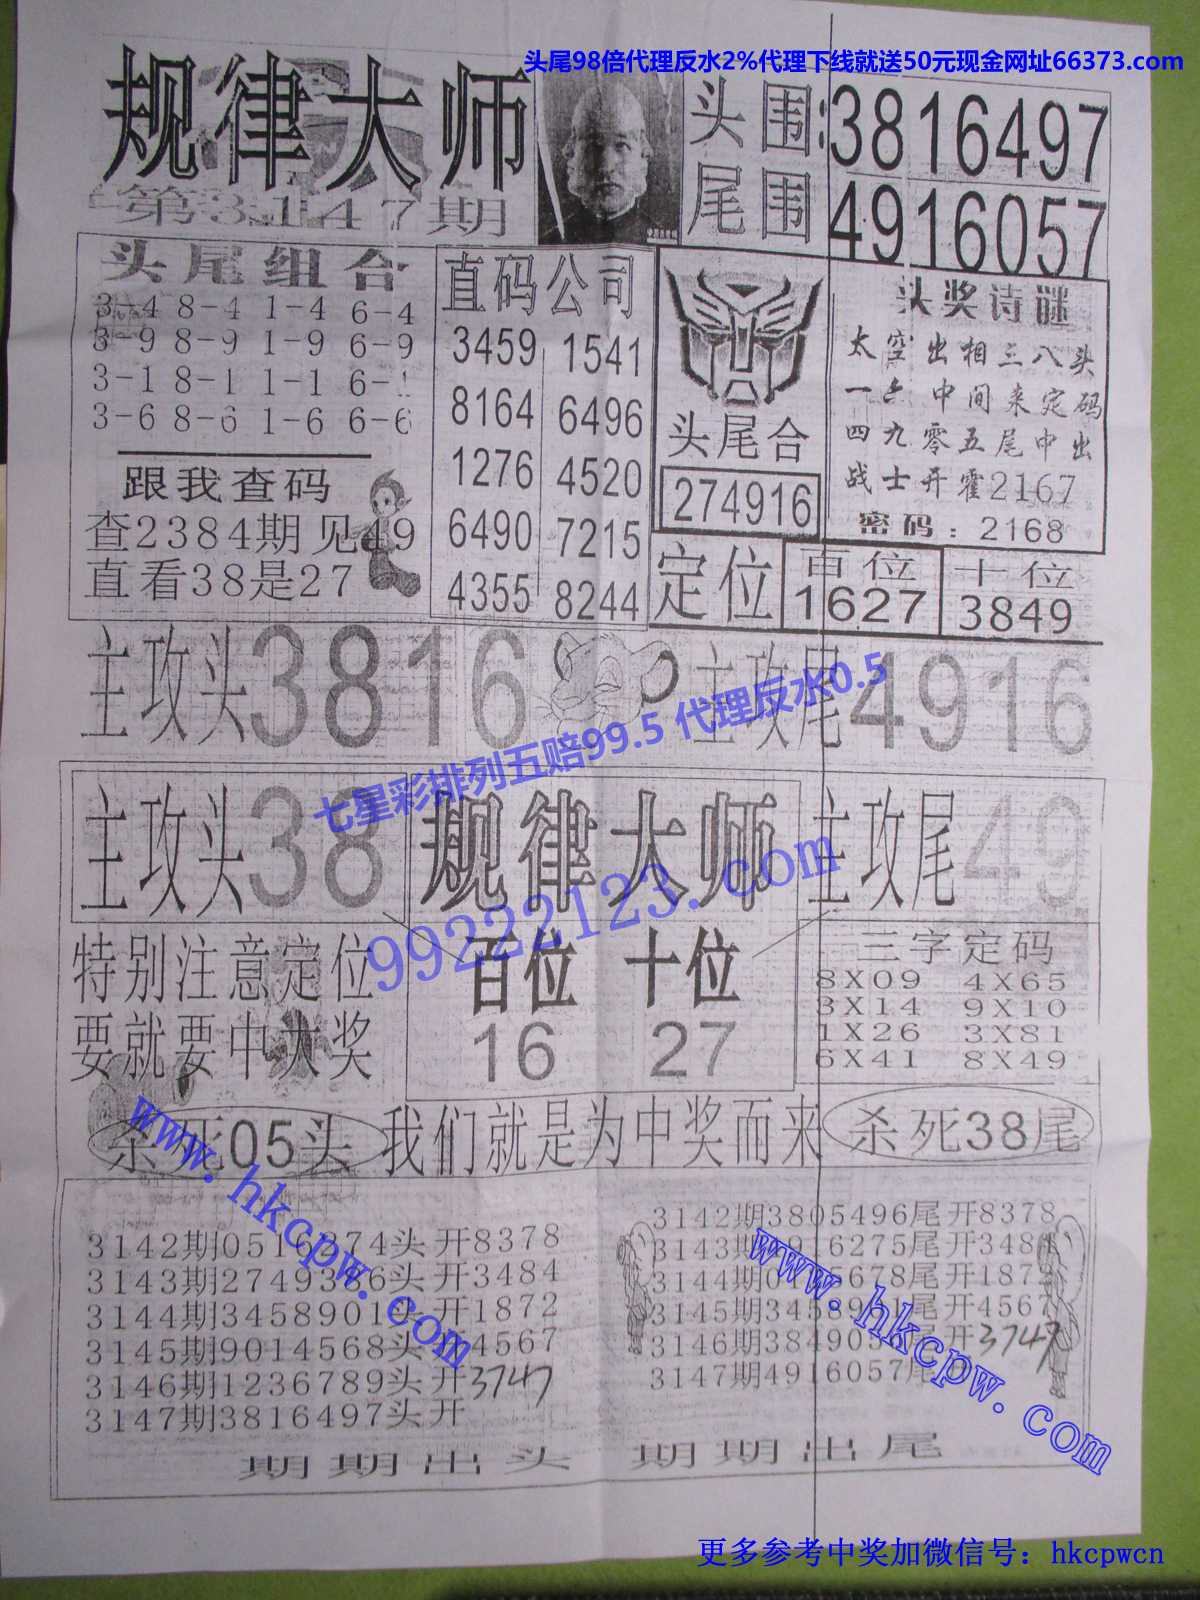 头尾98倍代理反水2%代理下线就送50元现金网址66373.com
规律大师
第3147期
头围:3816497
尾围4916057
头尾组合
3-4 8-4 1-4 6-4
3-9 8-9 1-9 6-9
3-1 8-1 1-1 6-
3-6 8-6 1-6 6-6
跟我查码
查2384期见49
直看38是27
直码公司
3459 1541
8164 6496
1276 4520
6490 7215
4355 8244
头尾合
274916
头奖诗谜
太空出相三八头
一六中间来定码
四九零五尾中出
战士开霍2167
密码：2168
定位
百位
1627
十位
3849
主攻头3816
主攻尾4916
七星彩排列五赔99.5 代理反水0.5
主攻头38
规律大师
主攻尾49
99222123.com
特别注意定位
要就要中大奖
百位 十位
16 27
三字定码
8X09 4X65
3X14 9X10
1X26 3X81
6X41 8X49
杀死05头
我们就是为中奖而来
杀死38尾
www.hkcpw.com
3142期0516274头开8378
3143期2749386头开3484
3144期3458901头开1872
3145期9014568头 4567
3146期1236789头开3747
3147期3816497头开
3142期3805496尾开8378
3143期4916275尾开3484
3144期 5678尾开1872
3145期3458961尾开4567
3146期3849056尾开3747
3147期4916057尾开
www.hkcpw.com
期期出头 期期出尾
更多参考中奖加微信号：hkcpwcn